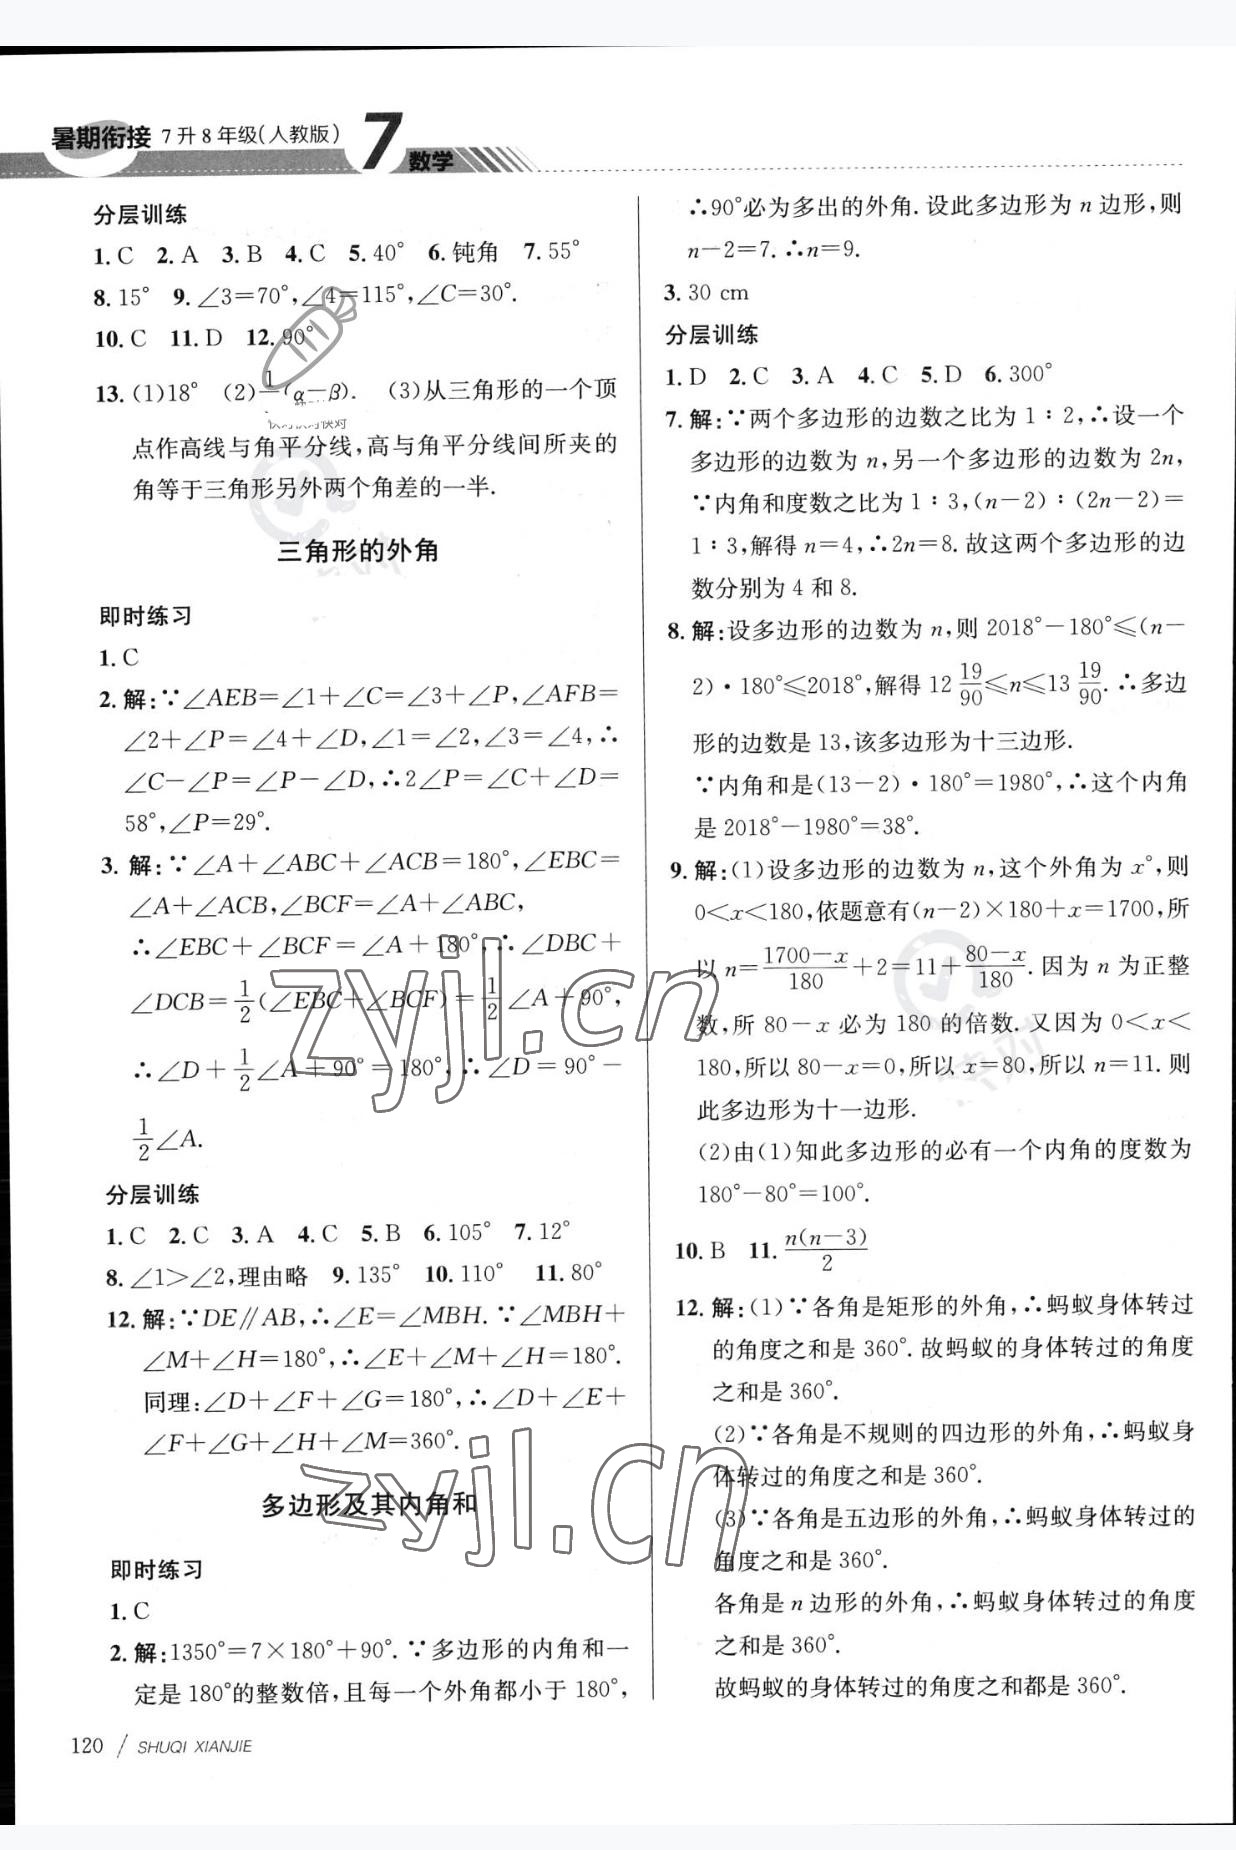 暑期衔接 7升8年级(人教版) 7 数学
分层训练
1. C 2. A 3. B 4. C 5. 40° 6. 钝角 7. 55°
8. 15° 9. ∠3=70°,∠4=115°,∠C=30°.
10. C 11. D 12. 90°
13. (1)18° (2)1/2(α-β). (3)从三角形的一个顶
点作高线与角平分线,高与角平分线间所夹的
角等于三角形另外两个角差的一半.
三角形的外角
即时练习
1. C
2. 解:∵∠AEB=∠1+∠C=∠3+∠P,∠AFB=
∠2+∠P=∠4+∠D,∠1=∠2,∠3=∠4,∴
∠C-∠P=∠P-∠D,∴2∠P=∠C+∠D=
58°,∠P=29°.
3. 解:∵∠A+∠ABC+∠ACB=180°,∠EBC=
∠A+∠ACB,∠BCF=∠A+∠ABC,
∴∠EBC+∠BCF=∠A+180°,∴∠DBC+
∠DCB=1/2(∠EBC+∠BCF)=1/2∠A+90°,
∴∠D+1/2∠A+90°=180°,∴∠D=90°-
1/2∠A.
分层训练
1. C 2. C 3. A 4. C 5. B 6. 105° 7. 12°
8. ∠1>∠2,理由略 9. 135° 10. 110° 11. 80°
12. 解:∵DE∥AB,∴∠E=∠MBH.∵∠MBH+
∠M+∠H=180°,∴∠E+∠M+∠H=180°.
同理:∠D+∠F+∠G=180°,∴∠D+∠E+
∠F+∠G+∠H+∠M=360°.
多边形及其内角和
即时练习
1. C
2. 解:1350°=7×180°+90°.∵多边形的内角和一
定是180°的整数倍,且每一个外角都小于180°,
∴90°必为多出的外角.设此多边形为n边形,则
n-2=7.∴n=9.
3. 30 cm
分层训练
1. D 2. C 3. A 4. C 5. D 6. 300°
7. 解:∵两个多边形的边数之比为1∶2,∴设一个
多边形的边数为n,另一个多边形的边数为2n,
∵内角和度数之比为1∶3,(n-2)∶(2n-2)=
1∶3,解得n=4,∴2n=8.故这两个多边形的边
数分别为4和8.
8. 解:设多边形的边数为n,则2018°-180°≤(n-
2)·180°≤2018°,解得12 19/90≤n≤13 19/90.∴多边
形的边数是13,该多边形为十三边形.
∵内角和是(13-2)·180°=1980°,∴这个内角
是2018°-1980°=38°.
9. 解:(1)设多边形的边数为n,这个外角为x°,则
0<x<180,依题意有(n-2)×180+x=1700,所
以n=(1700-x)/180+2=11+(80-x)/180.因为n为正整
数,所80-x必为180的倍数.又因为0<x<
180,所以80-x=0,所以x=80,所以n=11.则
此多边形为十一边形.
(2)由(1)知此多边形的必有一个内角的度数为
180°-80°=100°.
10. B 11. n(n-3)/2
12. 解:(1)∵各角是矩形的外角,∴蚂蚁身体转过
的角度之和是360°.故蚂蚁的身体转过的角度
之和是360°.
(2)∵各角是不规则的四边形的外角,∴蚂蚁身
体转过的角度之和是360°.
(3)∵各角是五边形的外角,∴蚂蚁身体转过的
角度之和是360°.
各角是n边形的外角,∴蚂蚁身体转过的角度
之和是360°.
故蚂蚁的身体转过的角度之和都是360°.
120 / SHUQI XIANJIE
zyjl.cn
zyjl.cn